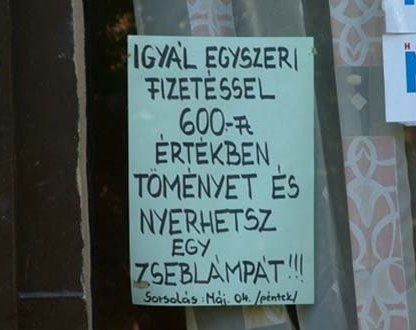 IGYÁL EGYSZERI
FIZETÉSSEL
600.-Ft
ÉRTÉKBEN
TÖMÉNYET ÉS
NYERHETSZ
EGY
ZSEBLÁMPÁT!!!
Sorsolás: Máj. 04. /péntek/
H